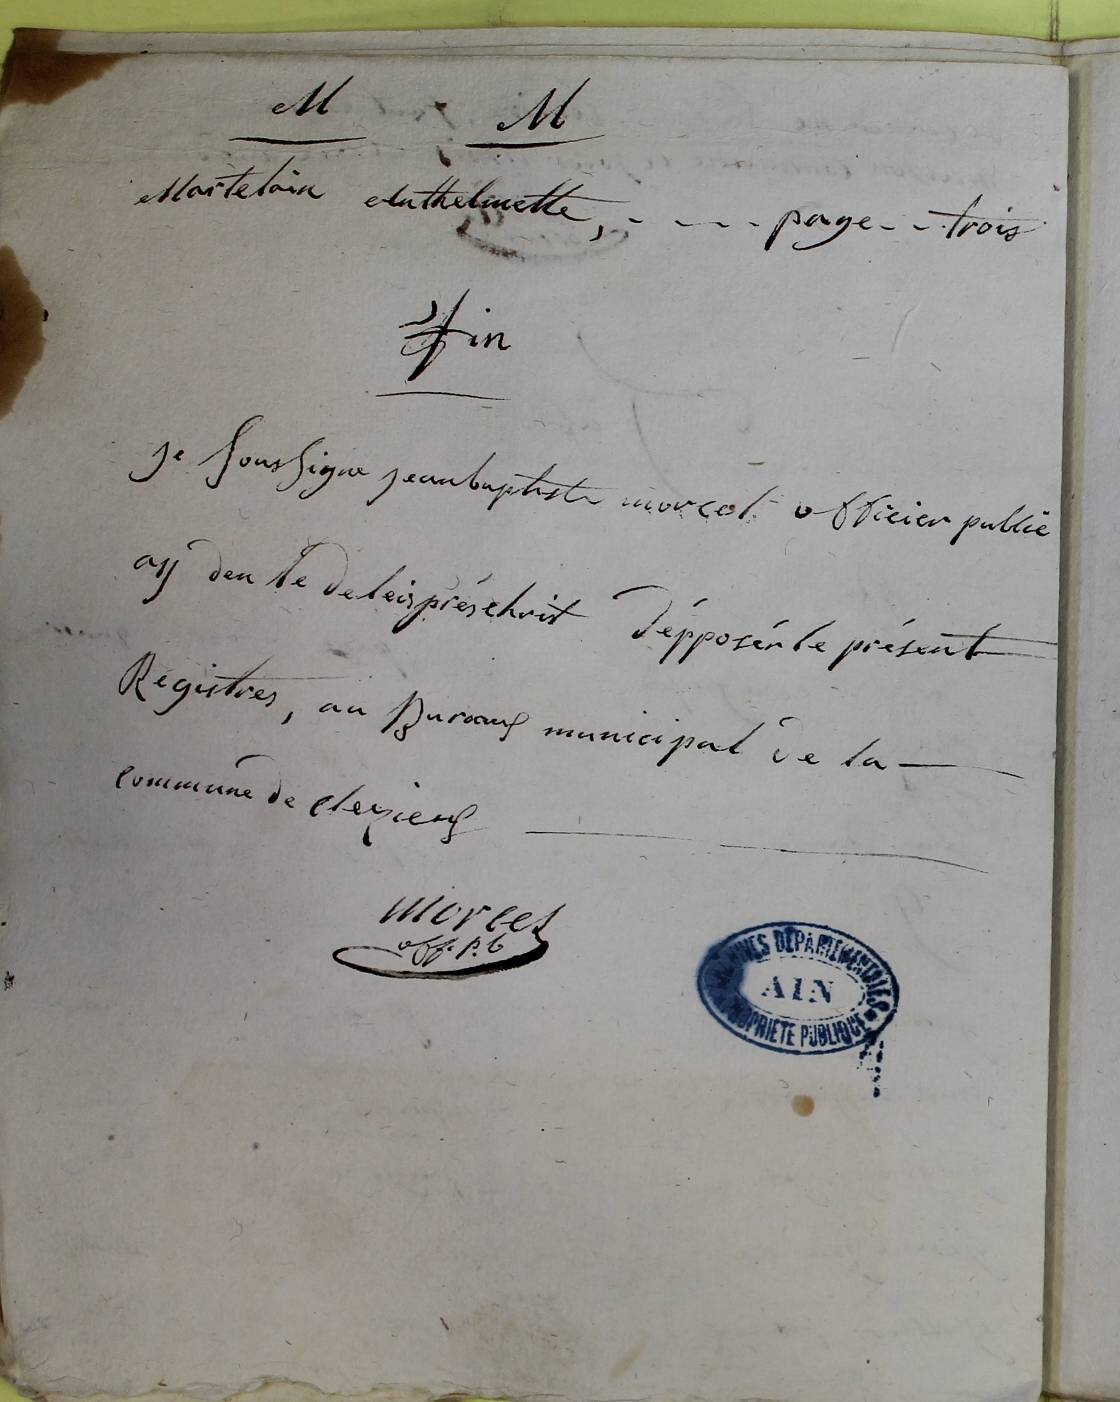 M M
Martelain Anthelmette, - - - - page - - trois
fin
je soussigne jeanbaptiste morcel officier public
ay den le deleis préschrit dépposér le présent
Registres, au Bureaux municipal de la
commune de cleyzieux
morcel
off. p. b
ARCHIVES DEPARTEMENTALES
AIN
PROPRIETE PUBLIQUE